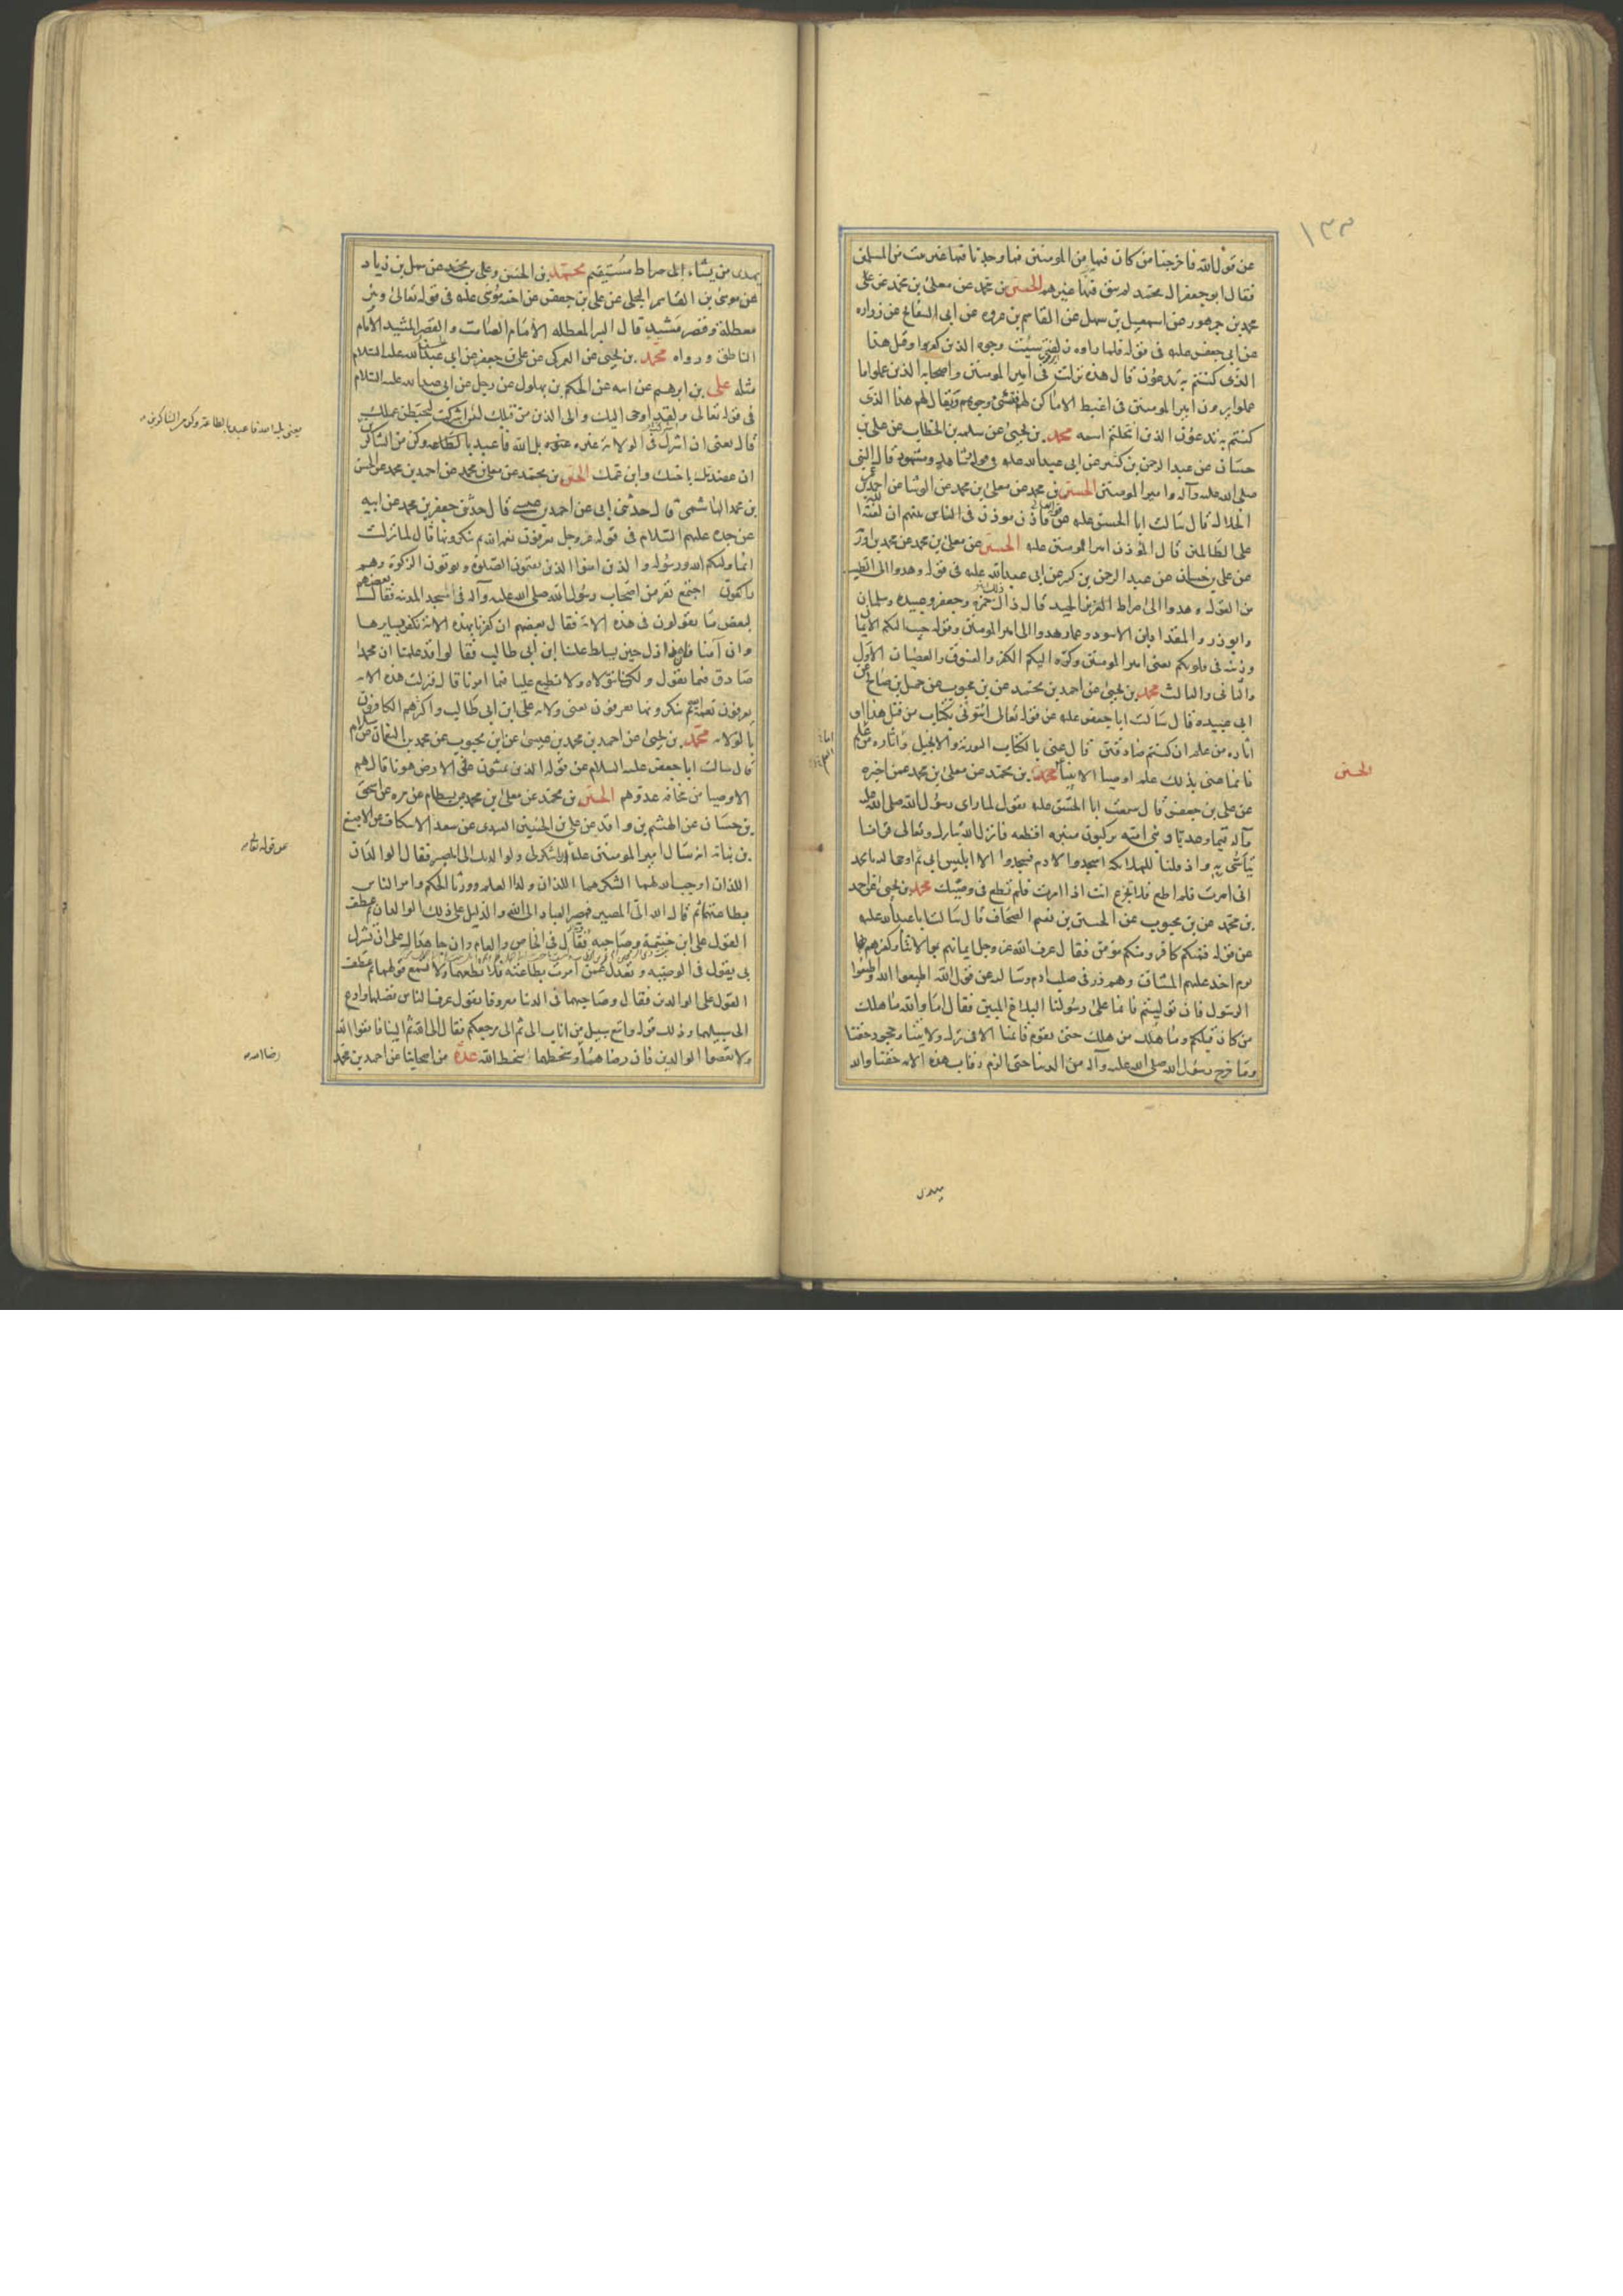 ١٣٣
عن قول الله فاخرجنا من كان فيها من المومنين فما وجدنا فيها غير بيت من المسلمين
فقال ابو جعفر ال محمد لم يبق فيها غيرهم الحسين بن محمد عن معلى بن محمد عن على
محمد بن جمهور عن اسمعيل بن سهل عن القاسم بن عروه عن ابى السفاتج عن زراره
عن ابى جعفر عليه فى قوله فلما راوه زلفة سيئت وجوه الذين كفروا وقيل هذا
الذى كنتم به تدعون قال هذه نزلت فى امير المومنين واصحابه الذين عملوا ما
عملوا يرون امير المومنين فى اغبط الاماكن لهم فيسيئ وجوههم ويقال لهم هذا الذى
كنتم به تدعون الذى انتحلتم اسمه محمد بن يحيى عن سلمه بن الخطاب عن على بن
حسان عن عبد الرحمن بن كثير عن ابى عبد الله عليه فى قوله شاهد ومشهود قال النبى
صلى الله عليه وآله وامير المومنين الحسين بن محمد عن معلى بن محمد عن الوشا عن احمد بن
الحلال قال سالت ابا الحسن عليه عن قوله فاذن موذن فى الناس بينهم ان لعنة الله
على الظالمين قال المؤذن امير المومنين عليه الحسين عن معلى بن محمد عن محمد بن اورم
عن على بن حسان عن عبد الرحمن بن كثير عن ابى عبد الله عليه فى قوله وهدوا الى الطيب
من القول وهدوا الى صراط العزيز الحميد قال ذاك حمزه وجعفر وعبيده وسلمان
وابوذر والمقداد بن الاسود وعمار هدوا الى امير المومنين وقوله حبب اليكم الايمان
وزينه فى قلوبكم يعنى امير المومنين وكره اليكم الكفر والفسوق والعصيان الاول
والثانى والثالث محمد بن يحيى عن احمد بن محمد عن بن محبوب عن جميل بن صالح عن
ابى عبيده قال سالت ابا جعفر عليه عن قوله تعالى ائتونى بكتاب من قبل هذا او
اثاره من علم ان كنتم صادقين قال عنى بالكتاب التورية والانجيل واثاره من علم
فانما عنى بذلك علم اوصيا الانبياء محمد بن محمد عن معلى بن محمد عمن اخبره
الحسين
عن على بن جعفر قال سمعت ابا الحسن عليه يقول لما راى رسول الله صلى الله عليه
وآله تيما وعديا وبنى اميه يركبون منبره افظعه فانزل الله تبارك وتعالى قرآنا
يتأسى به واذ قلنا للملائكة اسجدوا لادم فسجدوا الا ابليس ابى ثم اوحى اليه يا محمد
انى امرت فلم اطع فلا تجزع انت اذا امرت فلم تطع فى وصيك محمد بن يحيى عن احمد
بن محمد عن بن محبوب عن الحسين بن نعيم الصحاف قال سالت ابا عبد الله عليه
عن قوله فمنكم كافر ومنكم مؤمن فقال عرف الله عز وجل ايمانهم بولايتنا وكفرهم بها
يوم اخذ عليهم الميثاق وهم ذر فى صلب ادم وسالته عن قول الله اطيعوا الله واطيعوا
الرسول فان توليتم فانما على رسولنا البلاغ المبين فقال اما والله ما هلك
من كان قبلكم وما هلك من هلك حتى يقوم قائمنا الا فى ترك ولايتنا وجحود حقنا
وما خرج رسول الله صلى الله عليه وآله من الدنيا حتى الزم رقاب هذه الامه حقنا والله
يهدى
يهدى من يشاء الى صراط مستقيم محمد بن الحسن وعلى بن محمد عن سهل بن زياد
عن موسى بن القاسم البجلى عن على بن جعفر عن اخيه موسى عليه فى قوله تعالى وبئر
معطلة وقصر مشيد قال البئر المعطله الامام الصامت والقصر المشيد الامام
الناطق ورواه محمد بن يحيى عن العمركى عن على بن جعفر عن ابى الحسن عليه السلام
مثله على بن ابرهيم عن ابيه عن الحكم بن بهلول عن رجل عن ابى عبد الله عليه السلام
فى قوله تعالى ولقد اوحى اليك والى الذين من قبلك لئن اشركت ليحبطن عملك
قال يعنى ان اشركت فى الولاية غيره بل الله فاعبد بالطاعه وكن من الشاكرين
يعنى بل الله فاعبد بالطاعة وكن من الشاكرين
ان عضدتك باخيك وابن عمك الحسين بن محمد عن معلى بن محمد عن احمد بن محمد عن الحسن
بن محمد الهاشمى قال حدثنى ابى عن احمد بن عيسى قال حدثنى جعفر بن محمد عن ابيه
عن جده عليهم السلام فى قوله عز وجل يعرفون نعمة الله ثم ينكرونها قال لما نزلت
انما وليكم الله ورسوله والذين امنوا الذين يقيمون الصلوة ويوتون الزكوة وهم
راكعون اجتمع نفر من اصحاب رسول الله صلى الله عليه وآله فى مسجد المدينه فقال بعضهم
لبعض ما تقولون فى هذه الاية فقال بعضهم ان كفرنا بهذه الاية نكفر بسايرها
وان آمنا فان هذا ذل حين يسلط علينا ابن ابى طالب فقالوا قد علمنا ان محمدا
صادق فيما يقول ولكنا نتولاه ولا نطيع عليا فيما امرنا قال فنزلت هذه الايه
يعرفون نعمة الله ثم ينكرونها يعرفون يعنى ولايه على ابن ابى طالب واكثرهم الكافرون
بالولايه محمد بن يحيى عن احمد بن محمد بن عيسى عن ابن محبوب عن محمد بن النعمان عن سلام
قال سالت ابا جعفر عليه السلام عن قوله الذين يمشون على الارض هونا قال هم
الاوصيا من مخافة عدوهم الحسين بن محمد عن معلى بن محمد عن بسطام بن مره عن اسحق
بن حسان عن الهيثم بن واقد عن على بن الحسين العبدى عن سعد الاسكاف عن الاصبغ
عن قوله تعالى
بن نباته انه سال امير المومنين عليه ان اشكر لى ولوالديك الى المصير فقال الوالدان
اللذان اوجب الله لهما الشكر هما اللذان ولدا العلم وورثا الحكم وامر الناس
بطاعتهما ثم قال الله الى المصير فمصير العباد الى الله والدليل على ذلك الوالدان ثم عطف
القول على ابن حنتمة وصاحبه فقال فى الخاص والعام وان جاهداك على ان تشرك
بى يقول فى الوصية وتعدل عمن امرت بطاعته فلا تطعهما ولا تسمع قولهما ثم عطف
القول على الوالدين فقال وصاحبهما فى الدنيا معروفا يقول عرف الناس فضلهما وادع
الى سبيلهما وذلك قوله واتبع سبيل من اناب الى ثم الى مرجعكم فقال الى الله ثم الينا فاتقوا الله
ولا تعصوا الوالدين فان رضاهما وسخطهما سخط الله عدة من اصحابنا عن احمد بن محمد
رضا الله